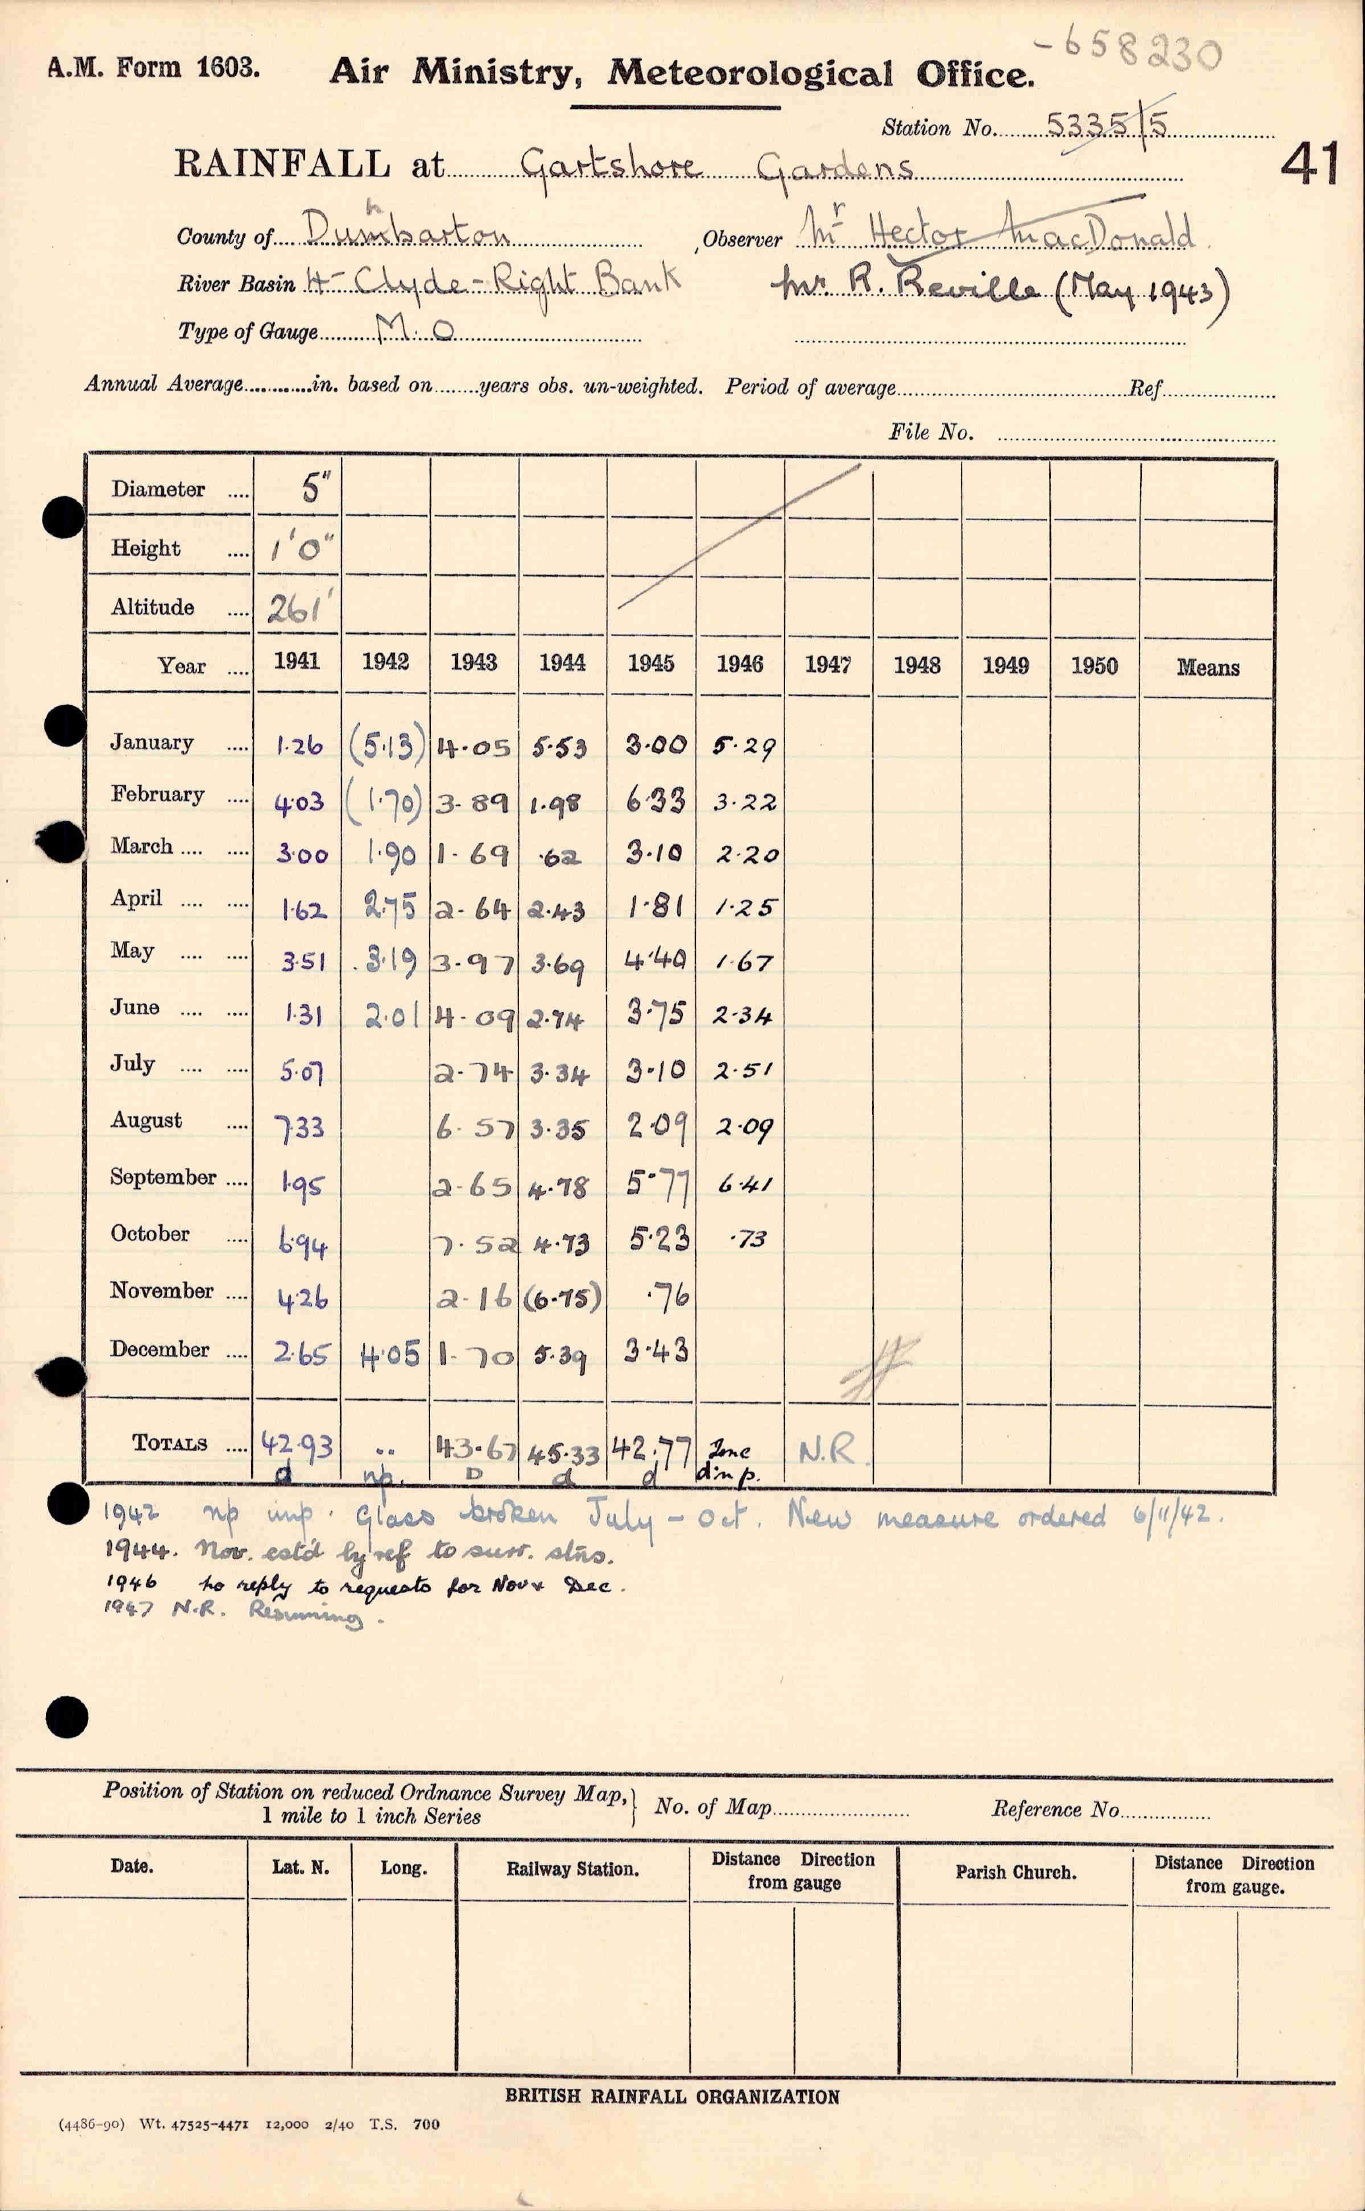 -658230
A.M. Form 1603. Air Ministry, Meteorological Office.
Station No. 5335/5
41
RAINFALL at Gartshore Gardens
County of Dumbarton Observer Mr Hector MacDonald
River Basin 4- Clyde-Right Bank Mr R. Reville (May 1943)
Type of Gauge M.O
Annual Average in. based on years obs. un-weighted. Period of average Ref
File No.
Diameter 5"
Height 1'0"
Altitude 261'
Year 1941 1942 1943 1944 1945 1946 1947 1948 1949 1950 Means
January 1.26 (5.13) 4.05 5.53 3.00 5.29
February 4.03 (1.70) 3.89 1.98 6.33 3.22
March 3.00 1.90 1.69 .62 3.10 2.20
April 1.62 2.75 2.64 2.43 1.81 1.25
May 3.51 3.19 3.97 3.69 4.40 1.67
June 1.31 2.01 4.09 2.74 3.75 2.34
July 5.07 2.74 3.34 3.10 2.51
August 7.33 6.57 3.35 2.09 2.09
September 1.95 2.65 4.78 5.77 6.41
October 6.94 7.52 4.73 5.23 .73
November 4.26 2.16 (6.75) .76
December 2.65 4.05 1.70 5.39 3.43
TOTALS 42.93 .. 43.67 45.33 42.77 N.R.
d np. D d d d np.
1942 np imp. Glass broken July - Oct. New measure ordered 6/11/42.
1944. Nov. estd by ref to surr. stns.
1946 no reply to requests for Nov & Dec.
1947 N.R. Resuming.
Position of Station on reduced Ordnance Survey Map, 1 mile to 1 inch Series No. of Map Reference No.
Date. Lat. N. Long. Railway Station. Distance Direction from gauge Parish Church. Distance Direction from gauge.
BRITISH RAINFALL ORGANIZATION
(4486-90) Wt. 47525-4471 12,000 2/40 T.S. 700